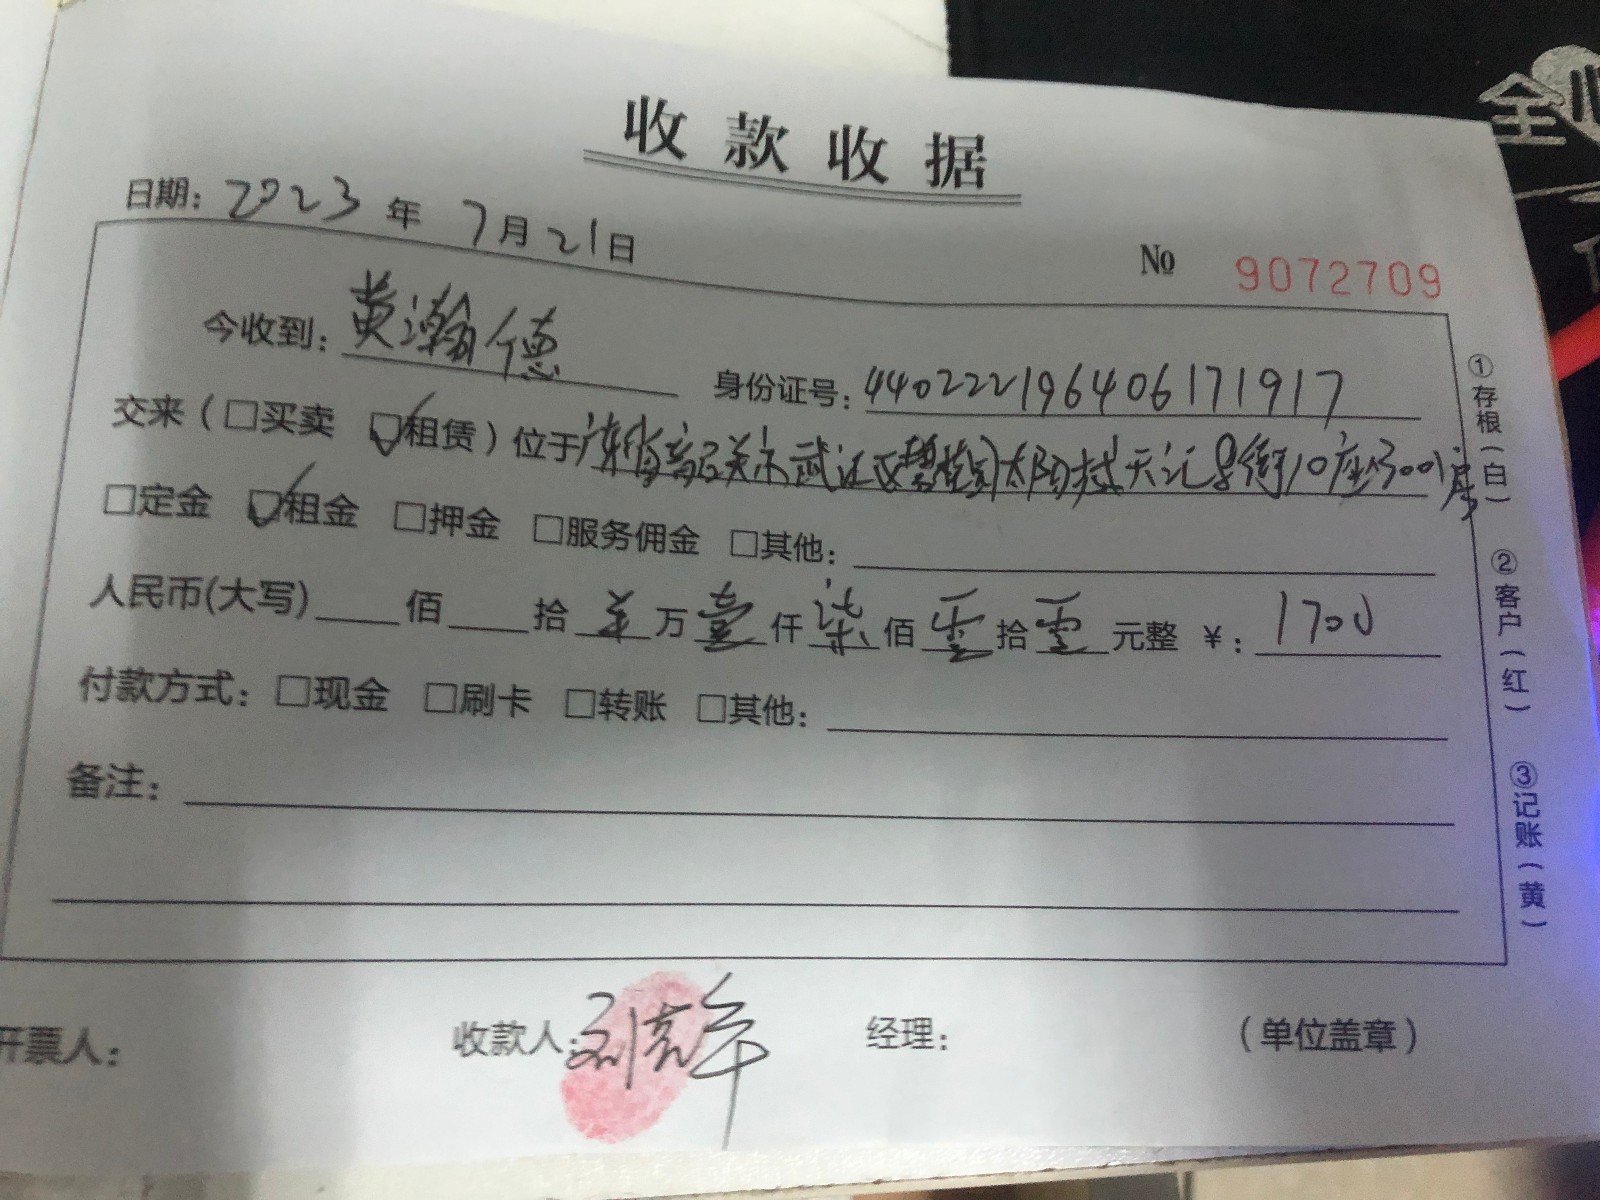 全心
收款收据
日期: 2023 年 7月21日
№ 9072709
今收到: 黄瀚德 身份证号: 440222196406171917
交来(□买卖 ☑租赁)位于广东省韶关市武江区碧桂园太阳城天汇 街10座3001房
□定金 ☑租金 □押金 □服务佣金 □其他:
人民币(大写) 佰 拾 万 壹 仟 柒 佰 零 拾 零 元整 ¥: 1700
付款方式: □现金 □刷卡 □转账 □其他:
备注:
开票人: 收款人: 刘 经理: (单位盖章)
①存根(白)
②客户(红)
③记账(黄)